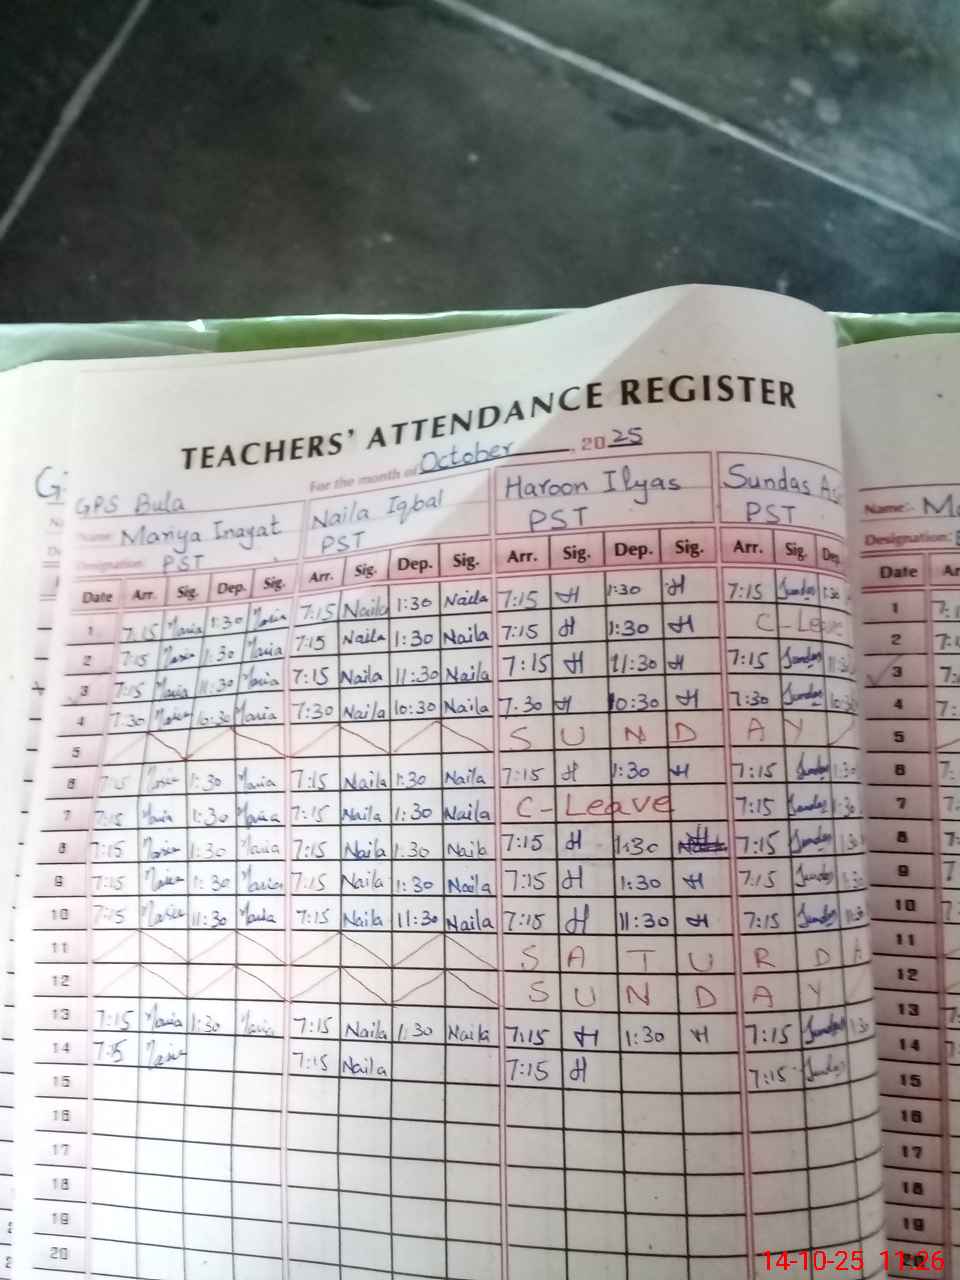 TEACHERS' ATTENDANCE REGISTER
For the month of October, 2025
GPS Bula
Name: Mariya Inayat Naila Iqbal Haroon Ilyas Sundas
Designation: PST PST PST PST
Date Arr. Sig. Dep. Sig. Arr. Sig. Dep. Sig. Arr. Sig. Dep. Sig. Arr. Sig. Dep.
1 7:15 Maria 1:30 Maria 7:15 Naila 1:30 Naila 7:15 H 1:30 H 7:15 Sundas 1:30
2 7:15 Maria 1:30 Maria 7:15 Naila 1:30 Naila 7:15 H 1:30 H C-Leave
3 7:15 Maria 11:30 Maria 7:15 Naila 11:30 Naila 7:15 H 11:30 H 7:15 Sundas 11:30
4 7:30 Maria 10:30 Maria 7:30 Naila 10:30 Naila 7:30 H 10:30 H 7:30 Sundas 10:
5 S U N D A Y
6 7:15 Maria 1:30 Maria 7:15 Naila 1:30 Naila 7:15 H 1:30 H 7:15 Sundas 1:30
7 7:15 Maria 1:30 Maria 7:15 Naila 1:30 Naila C-Leave 7:15 Sundas 1:30
8 7:15 Maria 1:30 Maria 7:15 Naila 1:30 Naila 7:15 H 1:30 7:15 Sundas 1:30
9 7:15 Maria 1:30 Maria 7:15 Naila 1:30 Naila 7:15 H 1:30 H 7:15 Sundas 1:30
10 7:15 Maria 11:30 Maria 7:15 Naila 11:30 Naila 7:15 H 11:30 H 7:15 Sundas 11:30
11 S A T U R D A
12 S U N D A Y
13 7:15 Maria 1:30 Maria 7:15 Naila 1:30 Naila 7:15 H 1:30 H 7:15 Sundas 1:30
14 7:15 Maria 7:15 Naila 7:15 H 7:15 Sundas
15
16
17
18
19
20
Name:-
Designation:
Date
1 7:
2 7:
3 7:
4 7:
5
6 7:
7
8
9 7
10
11
12
13
14
15
16
17
18
19
20
14-10-25 11:26